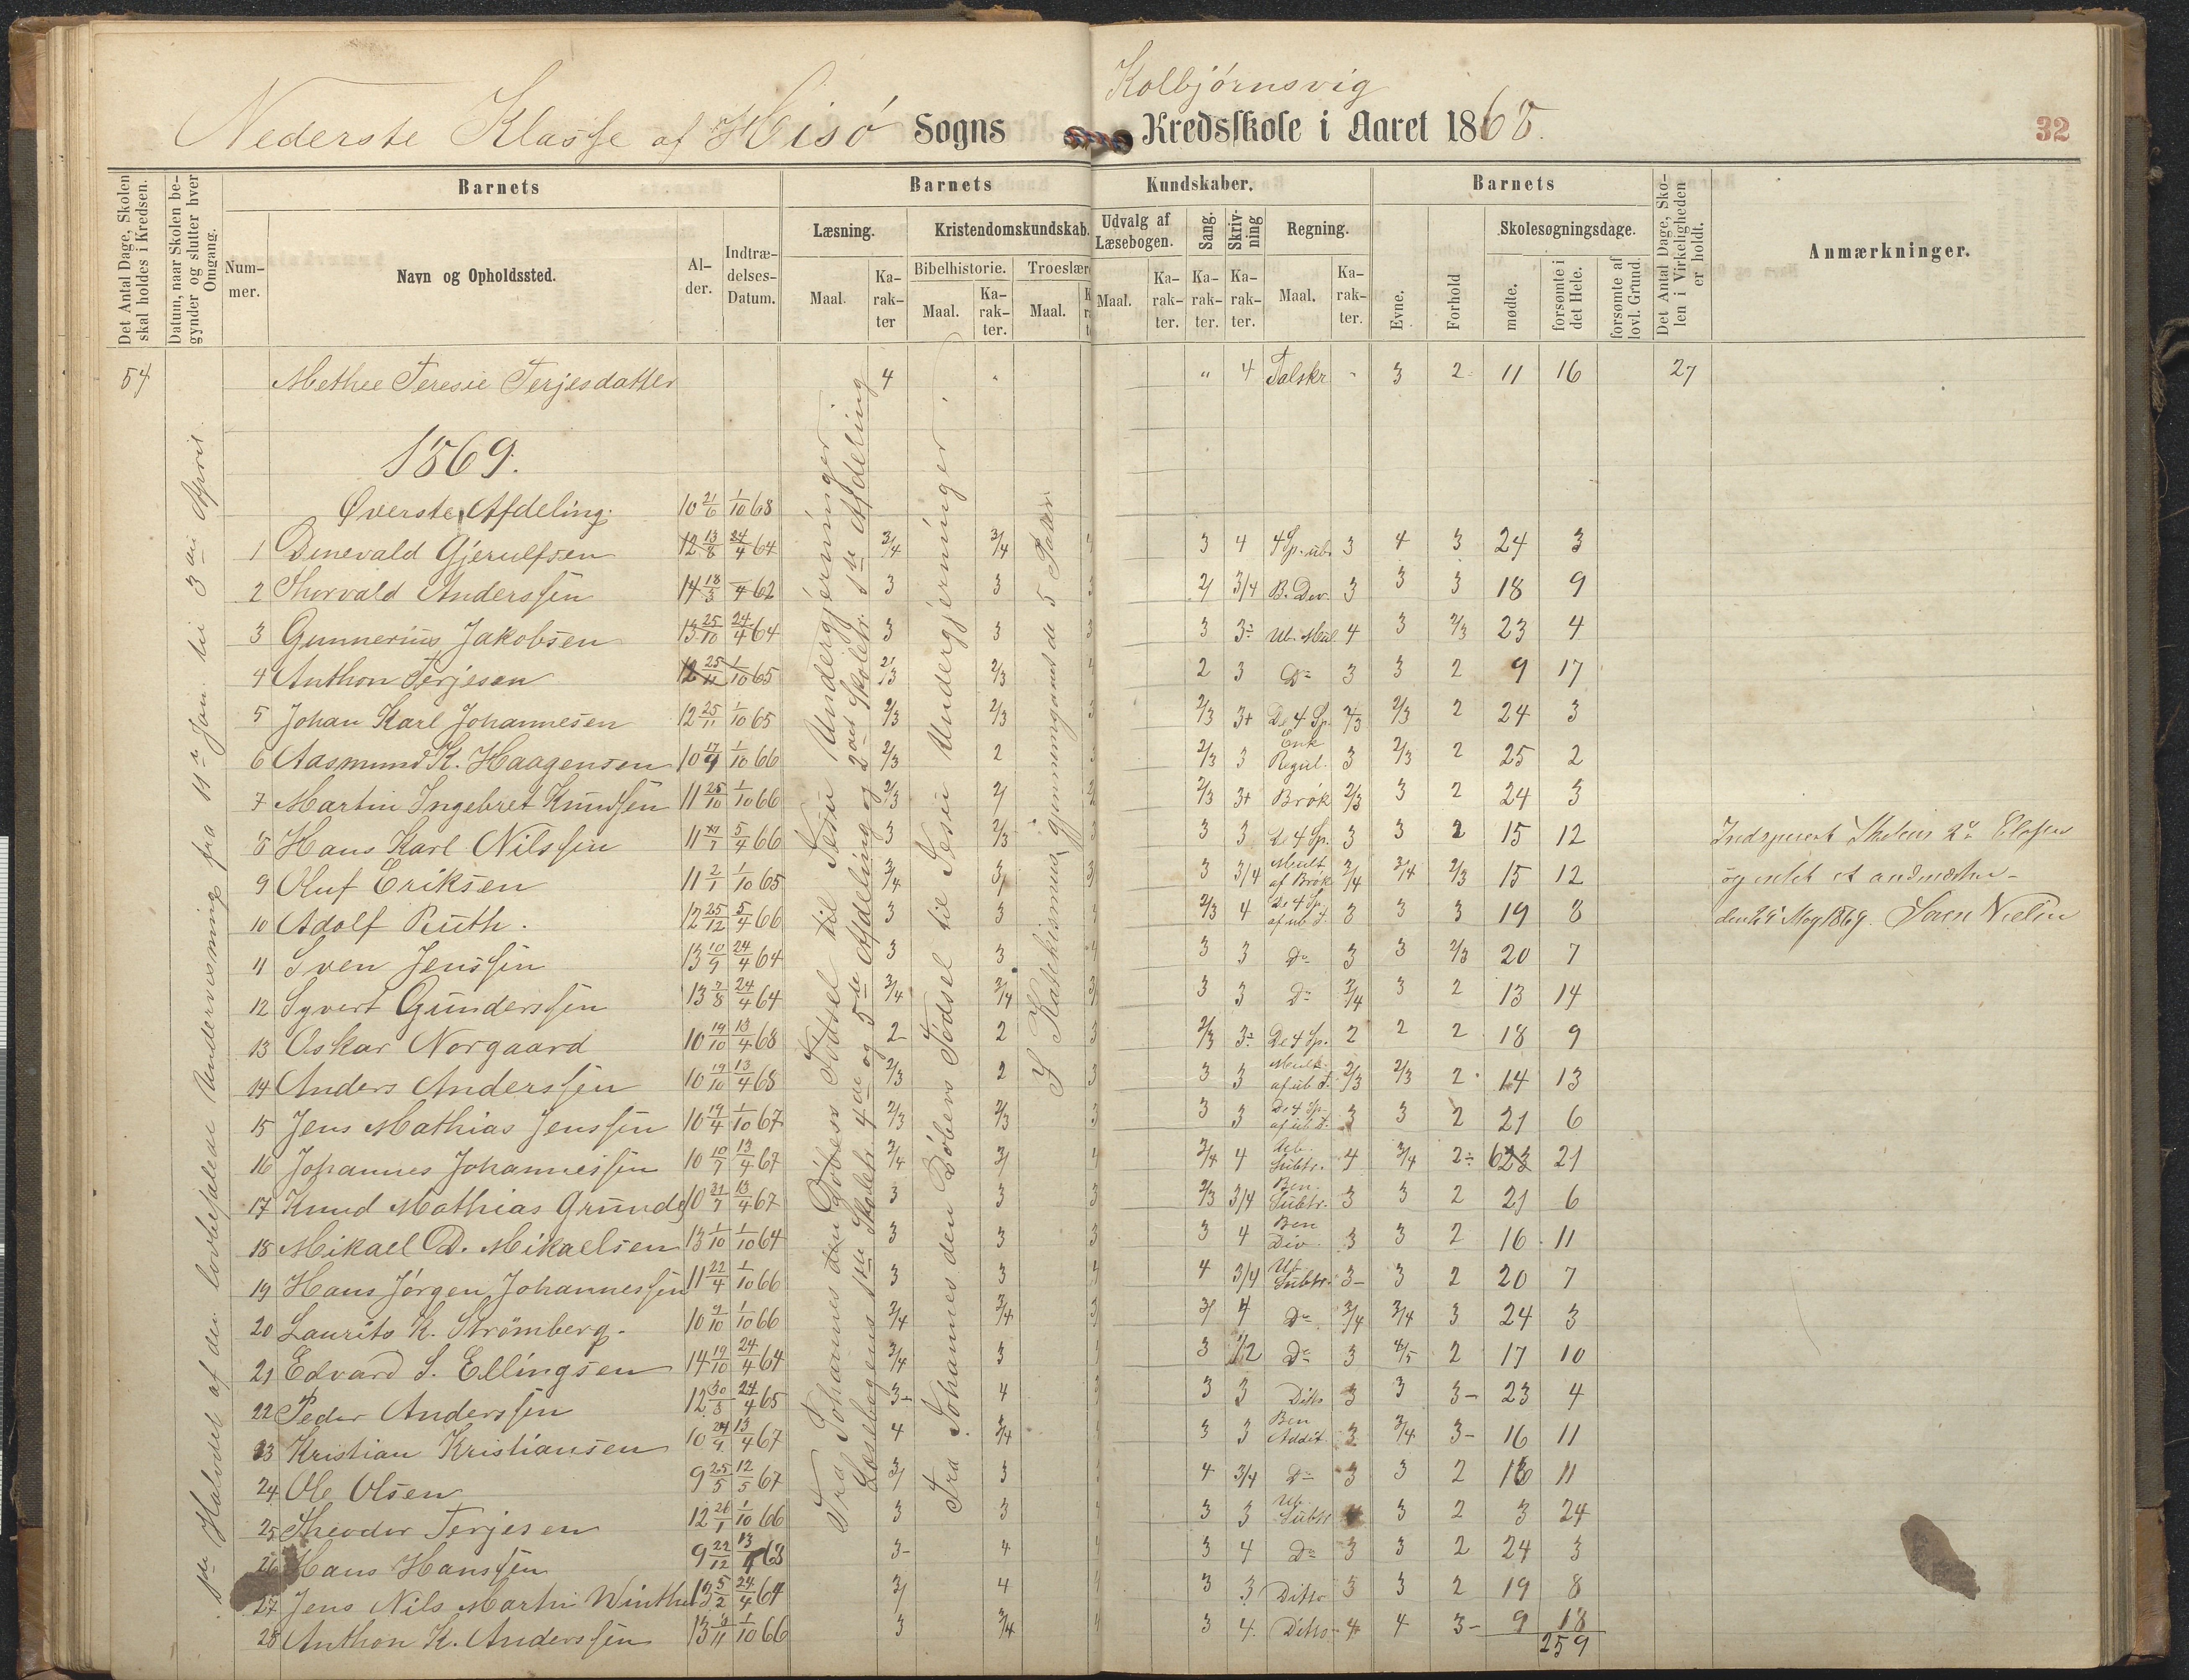 Kolbjørnsvig
Nederste Klasse af Hisø Sogns Kredsskole i Aaret 1868.
32
Det Antal Dage, Skolen skal holdes i Kredsen.
Datum, naar Skolen begynder og slutter hver Omgang.
Barnets
Barnets
Kundskaber.
Barnets
Det Antal Dage, Skolen i Virkeligheden er holdt.
Anmærkninger.
Nummer.
Navn og Opholdssted.
Alder.
Indtrædelses-Datum.
Læsning.
Kristendomskundskab.
Udvalg af Læsebogen.
Sang.
Skrivning
Regning.
Evne.
Forhold
Skolesøgningsdage.
Maal.
Karakter
Bibelhistorie.
Troeslær
Maal.
Karakter.
Maal.
Maal.
Karakter.
Karakter.
Karakter.
Maal.
Karakter.
mødte.
forsømte i det Hele.
forsømte af lovl. Grund.
54 Methee Teresie Terjesdatter 4 " " 4 Talskr - 3 2 11 16 27
1869.
Øverste Afdeling. 10 21/6 1/10 68
1 Denevald Gjerulfsen 12 13/8 24/4 64 3/4 3/4 4 3 4 4 Sp. ub. 3 4 3 24 3
2 Thorvald Anderssen 14 18/3 4 62 3 3 3 2/ 3/4 B. Dev. 3 3 3 18 9
3 Gunnerius Jakobsen 13 25/10 24/4 64 3 3 3 3 3÷ Ub. Mul. 4 3 2/3 23 4
4 Anthon Terjesen 12 25/11 1/10 65 2/3 2/3 4 2 3 Do 3 3 2 9 17
5 Johan Karl Johannesen 12 25/11 1/10 65 2/3 2/3 3 2/3 3+ De 4 Sp. 2/3 2/3 2 24 3
6 Aasmund K. Haagensen 10 17/9 1/10 66 2/3 2 3 2/3 3 Enk Regul. 3 2/3 2 25 2
7 Martin Ingebret Knudsen 11 25/10 1/10 66 2/3 2/ 2/3 3+ Brøk 2/3 3 2 24 3
8 Hans Karl Nilssen 11 5/4 66 3 2/3 3 3 3 De 4 Sp. 3 3 2 15 12
9 Oluf Eriksen 11 2/1 1/10 65 3/4 3/ 3/ 3 3/4 Mult af Brøk 3/4 3/4 2/3 15 12
10 Adolf Ruth. 12 25/12 5/4 66 3 3 3 2/3 4 De 4 Sp. af ub. T. 3 3 3 19 8
11 Sven Jenssen 13 10/9 24/4 64 3 3 4 3 3 Do 3 3 2/3 20 7
12 Syvert Gunderssen 13 7/8 24/4 64 3/4 3/4 3/ 3 3 Do 3/4 3 2 13 14
13 Oskar Norgaard 10 19/10 13/4 68 2 2 3 2/3 3÷ De 4 Sp. 2 2 2 18 9
14 Anders Anderssen 10 19/10 13/4 68 2/3 2 3 3 3 Mult. af ub T. 2/3 2/3 2 14 13
15 Jens Mathias Jenssen 10 19/4 1/10 67 2/3 2/3 3 3 3 De 4 Sp. af ub. T. 3 3 2 21 6
16 Johannes Johannessen 10 10/7 13/4 67 3/4 3/ 4 3/4 4 Ub. Subtr. 4 3/4 2÷ 6 21
17 Knud Mathias Grunds 10 31/7 13/4 67 3 3 3 2/3 3/4 Ben. Subtr. 3 3 2 21 6
18 Mikael D. Mikaelsen 13 1/10 1/10 64 3 3 3 3 4 Ben Div. 3 3 2 16 11
19 Hans Jørgen Johannessen 11 22/4 1/10 66 3 3 4 4 3/4 Ub Subtr. 3- 3 2 20 7
20 Laurits K. Strømberg. 10 9/10 1/10 66 3/4 3/4 3/ 3/ 4 Do 3/4 3/4 3 24 3
21 Edvard S. Ellingsen 14 19/10 24/4 64 3/4 3 3 1/2 Do 3 4/5 2 17 10
22 Peder Anderssen 12 30/3 24/4 65 3- 4 3 3 3 Ditto 3 3 3- 23 4
23 Kristian Kristiansen 10 13/4 67 4 3/4 3 3 Ben Addit. 3 3/4 3- 16 11
24 Ole Olsen 9 25/5 12/5 67 3/ 3 4 3/4 Do 3 3 2 16 11
25 Theodor Terjesen 12 26/1 1/10 66 3 3 3 3 Ub. Subtr 4 3 2 3 24
26 Hans Hanssen 9 22/12 13/4 68 3- 4 3 4 Do 3 3 2 24 3
27 Jens Nils Martin Winther 13 5/2 24/4 64 3/ 4 3 3 Ditto 3 3 2 19 8
28 Anthon K. Anderssen 13 1/10 66 3 3/4 3 4 Ditto 4 4 3- 9 18
259
pr Halvdel af den lovbefalede Undervisning fra 11te Jan. til 3die April.
Fra Johannes den Døbers Fødsel til Jesu Undergjerninger.
Læsebogens 1ste Skoletr. 4de og 5te Afdeling og 2det Skoletr. 1ste Afdeling
Fra Johannes den Døbers Fødsel til Jesu Undergjerninger.
I Katekismus gjennemgaaet de 5 Parter
Skolens 2den Classes
og
den 29 Maj 1869.